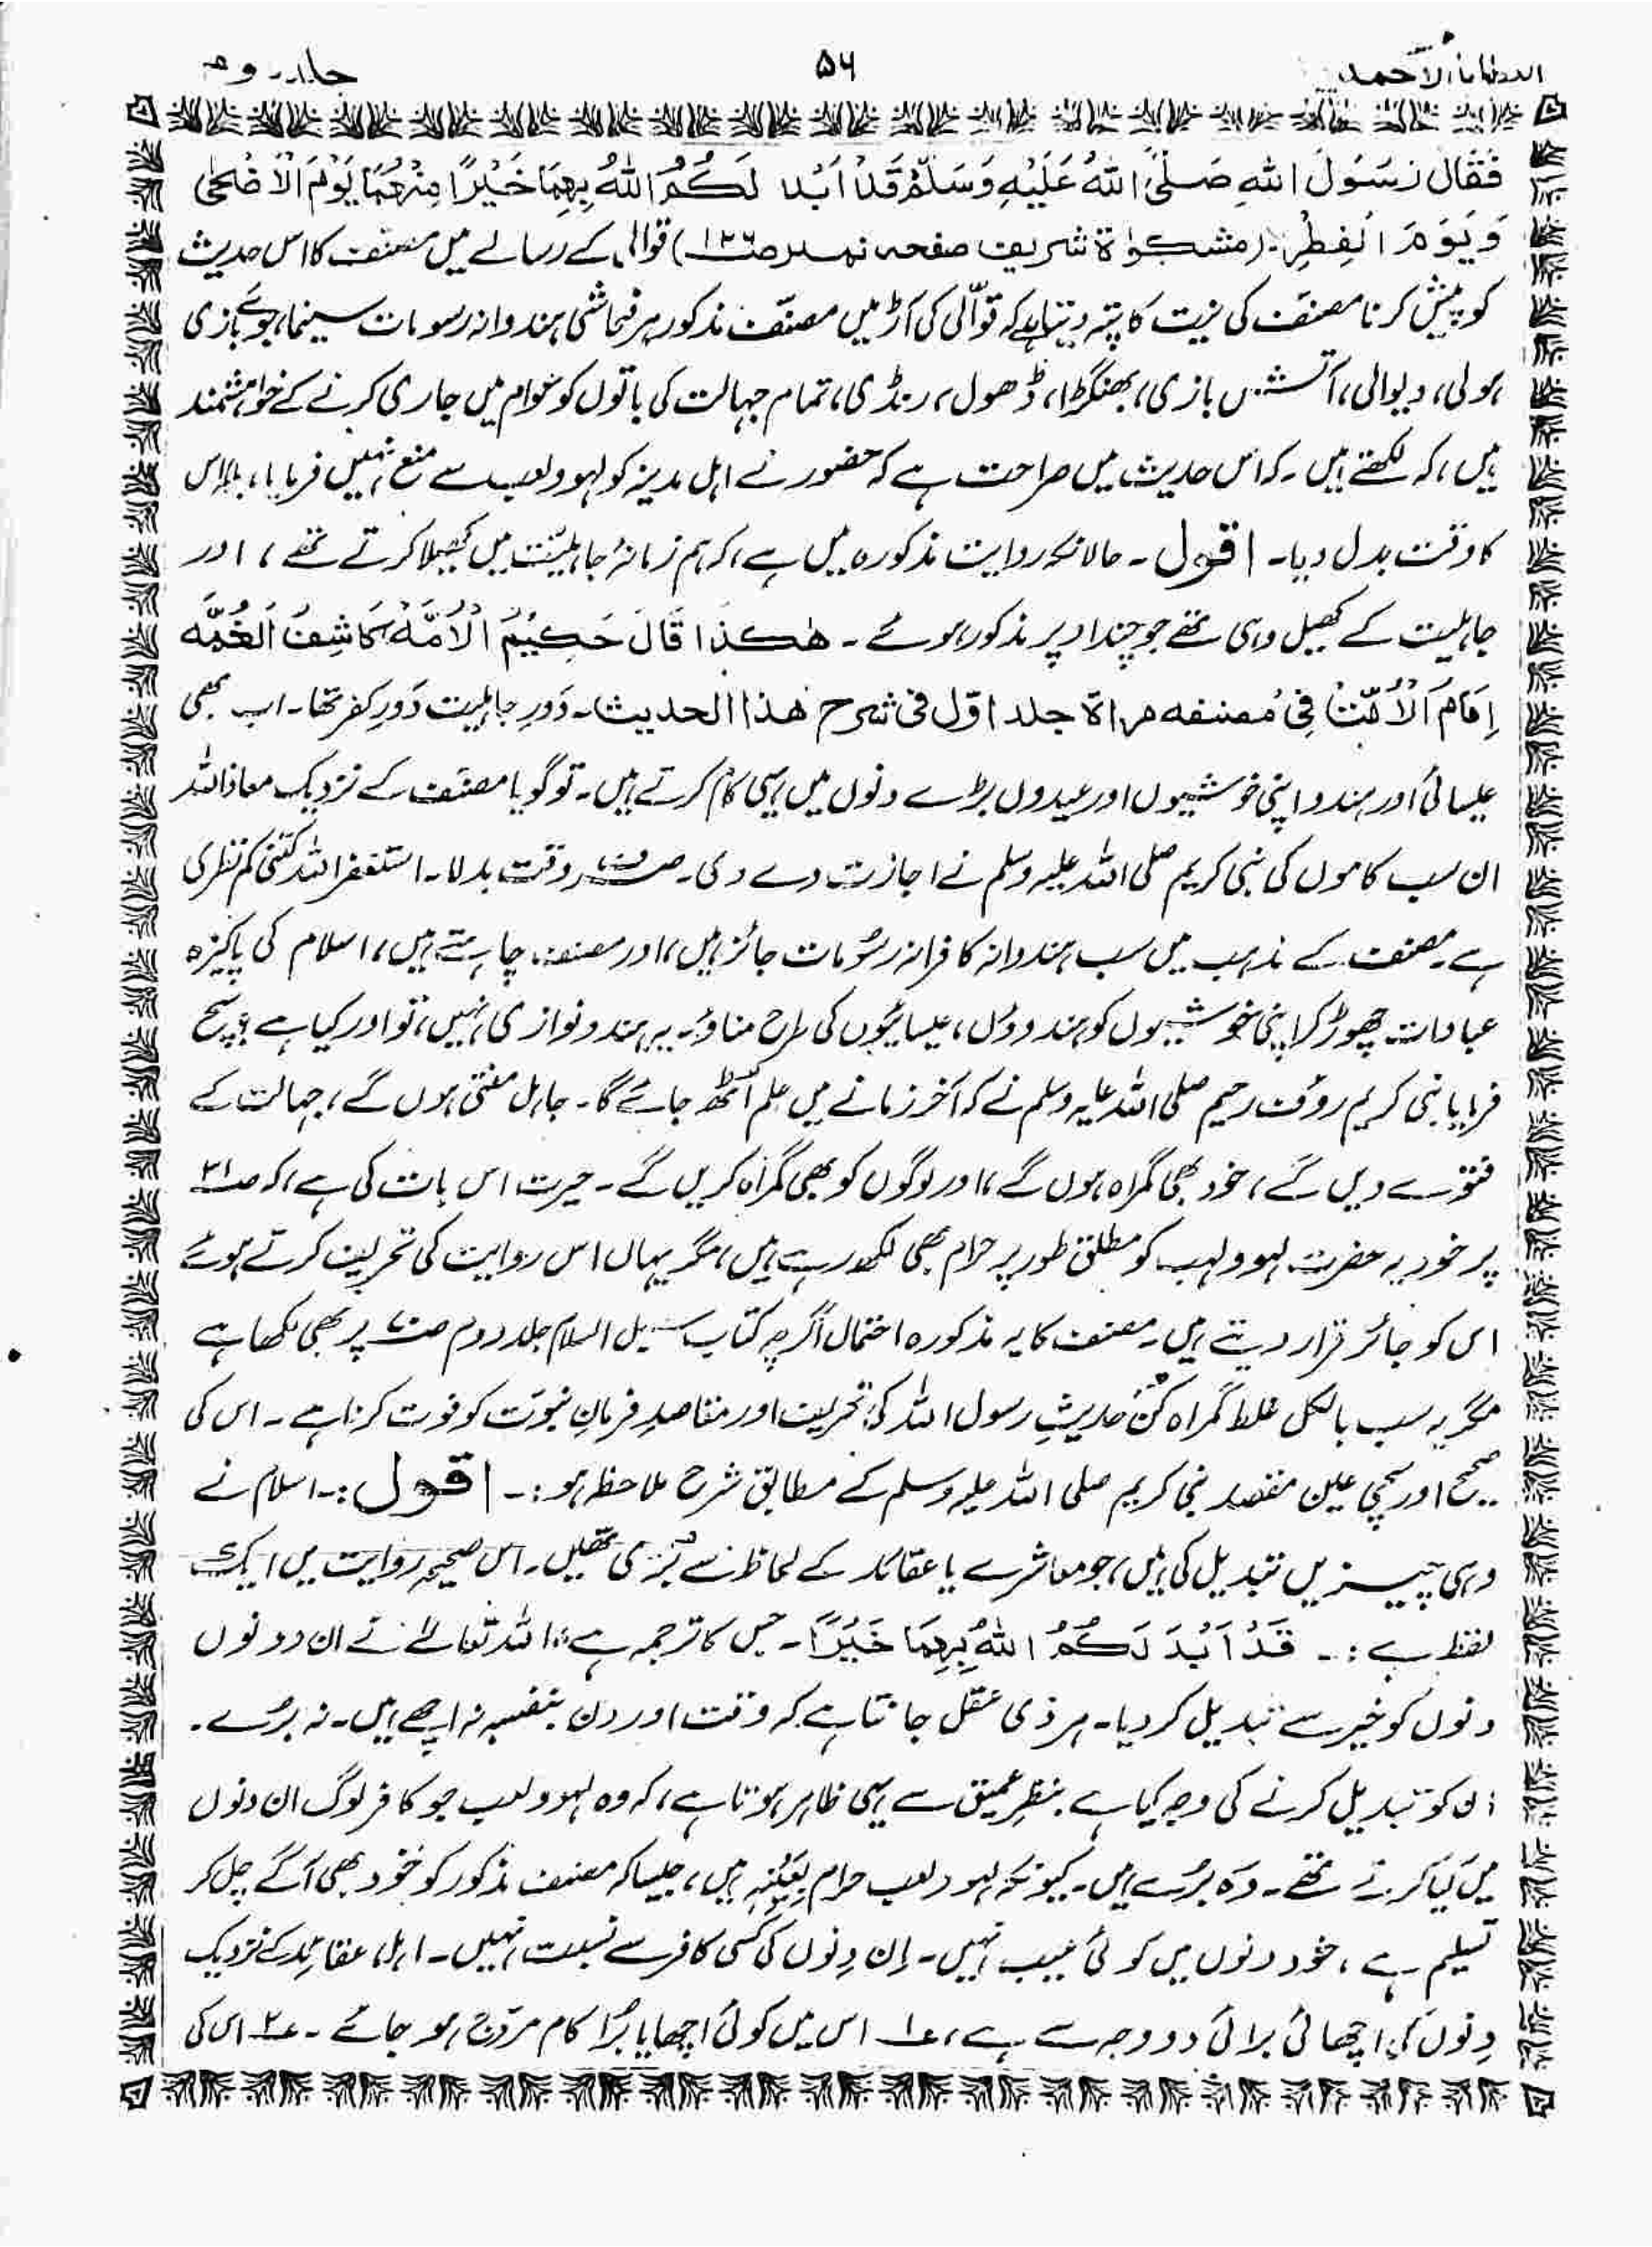 العطایا الاحمدیہ ۵۶ جلد دوم
فَقَالَ رَسُوْلَ اللهِ صَلَّی اللهُ عَلَیْهِ وَسَلَّمْ قَدْ اَبْدَ لَكُمُ اللهُ بِهِمَا خَیْرًا مِنْهُمَا یَوْمَ الْاَضْحٰی
وَیَوْمَ الْفِطْرِ۔ (مشکوٰة شریف صفحہ نمبر ص۱۲۶) قوالی کے رسالے میں مصنف کا اس حدیث
کو پیش کرنا مصنّف کی نیت کا پتہ دیتا ہے کہ قوّالی کی آڑ میں مصنّف مذکور ہر فحاشی ہندوانہ رسومات سینما، جوئے بازی
ہولی، دیوالی، آتش بازی، بھنگڑا، ڈھول، رنڈی، تمام جہالت کی باتوں کو عوام میں جاری کرنے کے خواہشمند
ہیں، کہ لکھتے ہیں۔ کہ اس حدیث میں صراحت ہے کہ حضور نے اہل مدینہ کو لہو ولعب سے منع نہیں فرمایا، بلکہ اس
کا وقت بدل دیا۔ اقول۔ حالانکہ روایت مذکورہ میں ہے، کہ ہم زمانۂ جاہلیّت میں کھیلا کرتے تھے، اور
جاہلیت کے کھیل وہی تھے جو چند اوپر مذکور ہوئے۔ هٰكذا قَالَ حَکِیْمُ الْاُمَّهْ كَاشِفُ الْغُمَّه
اِمَامَ الْاُمَّتْ فِیْ مُصنفه مراة جلد اوّل فی شرح هٰذا الحدیث۔ دَورِ جاہلیت دَورِ کفر تھا۔ اب بھی
عیسائی اور ہندو اپنی خوشیوں اور عیدوں بڑے دنوں میں یہی کام کرتے ہیں۔ تو گویا مصنّف کے نزدیک معاذ اللہ
ان سب کاموں کی نبی کریم صلی اللہ علیہ وسلم نے اجازت دے دی۔ صرف وقت بدلا۔ استغفر اللہ کتنی کم نظری
ہے۔ مصنف کے مذہب میں سب ہندوانہ کافرانہ رسُومات جائز ہیں، اور مصنف چاہتے ہیں، اسلام کی پاکیزہ
عبادات چھوڑ کر اپنی خوشیوں کو ہندووں، عیسائیوں کی طرح مناؤ۔ یہ ہندو نوازی نہیں، تو اور کیا ہے ؟ سچ
فرمایا نبی کریم رؤف رحیم صلی اللہ علیہ وسلم نے کہ آخر زمانے میں علم اُٹھ جائے گا۔ جاہل مفتی ہوں گے، جہالت کے
فتوے دیں گے، خود بھی گمراہ ہوں گے، اور لوگوں کو بھی گمراہ کریں گے۔ حیرت اس بات کی ہے، کہ ص۲۱
پر خود یہ حضرت لہو ولہب کو مطلق طور پر حرام بھی لکھ رہے ہیں، مگر یہاں اس روایت کی تحریف کرتے ہوئے
اس کو جائز قرار دیتے ہیں۔ مصنف کا یہ مذکورہ احتمال اگرچہ کتاب سبیل السلام جلد دوم پر بھی لکھا ہے
مگر یہ سب بالکل غلط گمراہ کُن حدیثِ رسول اللہ کی تحریف اور مقاصدِ فرمانِ نبوّت کو فوت کرنا ہے۔ اس کی
صحیح اور سچی عین مقصد نبی کریم صلی اللہ علیہ وسلم کے مطابق شرح ملاحظہ ہو:۔ اقول:۔ اسلام نے
وہی چیزیں تبدیل کی ہیں، جو معاشرے یا عقائد کے لحاظ سے بُری تھیں۔ اس صحیح روایت میں ایک
لفظ ہے:۔ قَدْ اَبْدَ لَكُمُ اللهُ بِهِمَا خَیْرًا۔ جس کا ترجمہ ہے، اللہ تعالےٰ نے ان دونوں
دنوں کو خیر سے تبدیل کر دیا۔ ہر ذی عقل جانتا ہے کہ وقت اور دن بنفسہٖ نہ اچھے ہیں۔ نہ بُرے۔
ان کو تبدیل کرنے کی وجہ کیا ہے بنظرِ عمیق سے یہی ظاہر ہوتا ہے، کہ وہ لہو ولعب جو کافر لوگ ان دنوں
میں کیا کرتے تھے۔ وہ بُرے ہیں۔ کیونکہ لہو ولعب حرام بِعَیْنِہٖ ہیں، جیسا کہ مصنف مذکور کو خود بھی آگے چل کر
تسلیم ہے، خود دنوں میں کوئی عیب نہیں۔ اِن دِنوں کی کسی کافر سے نسبت نہیں۔ اہل عقائد کے نزدیک
دِنوں کی اچھائی برائی دو وجہ سے ہے، ۱؎ اس میں کوئی اچھا یا بُرا کام مروّج ہو جائے۔ ۲؎ اس کی